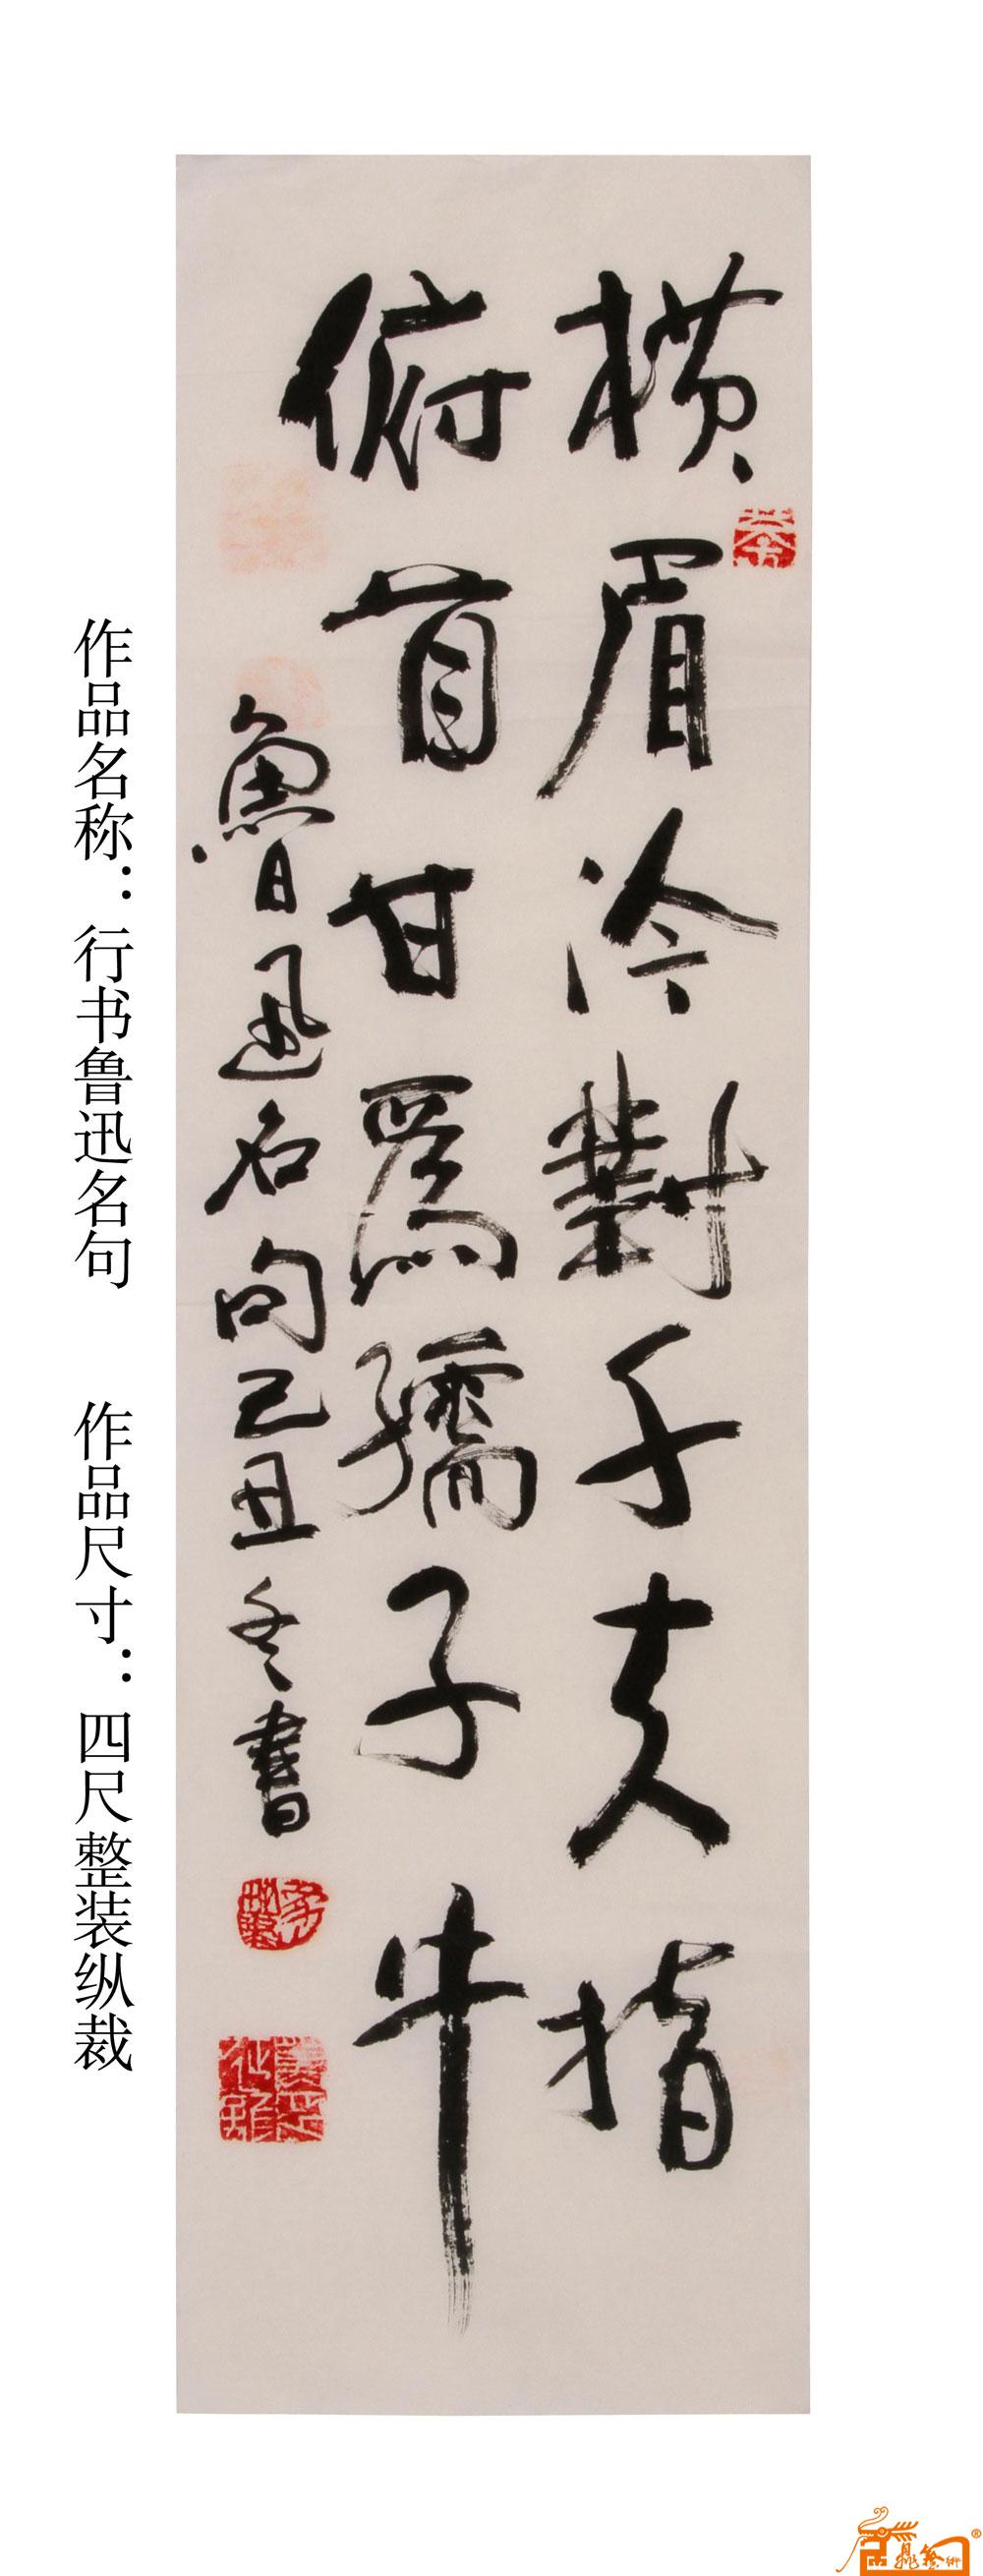 橫眉冷對千夫指
俯首甘爲孺子牛
魯迅名句己丑冬書
作品名称：行书鲁迅名句 作品尺寸：四尺整装纵裁